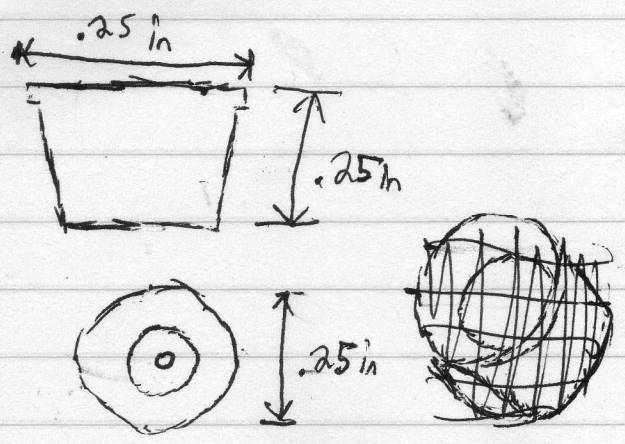 .25 in
.25in
.25in